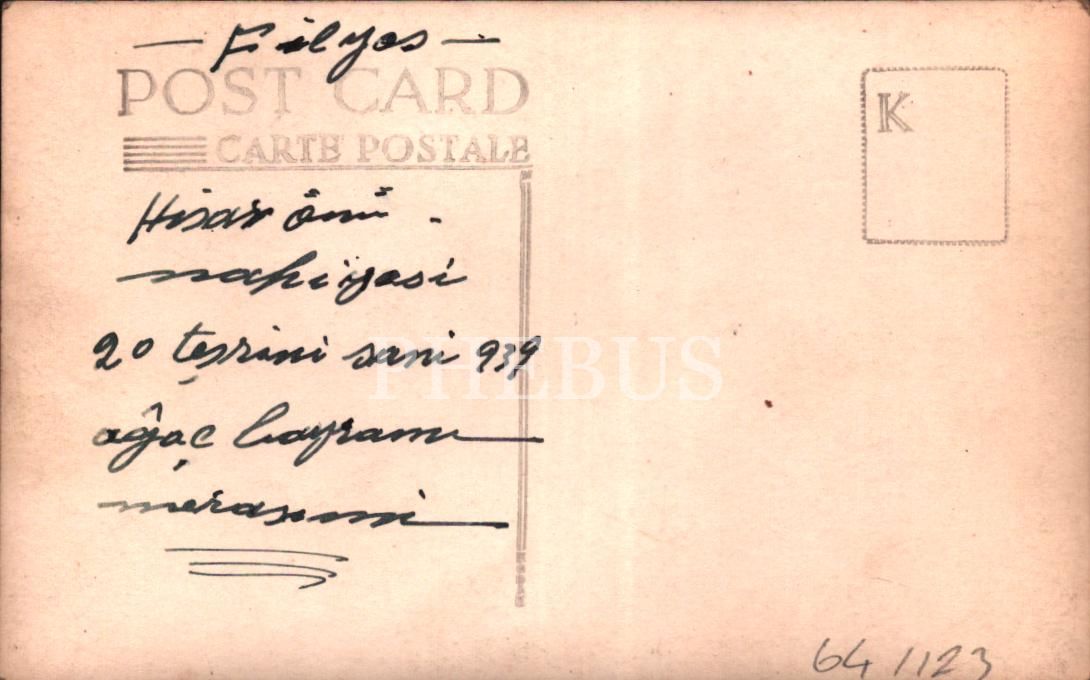 — Filyos —
POST CARD
CARTE POSTALE
K
Hisar önü -
nahiyesi
20 teşrini sani 939
PHEBUS
ağaç bayramı
merasimi
64/123